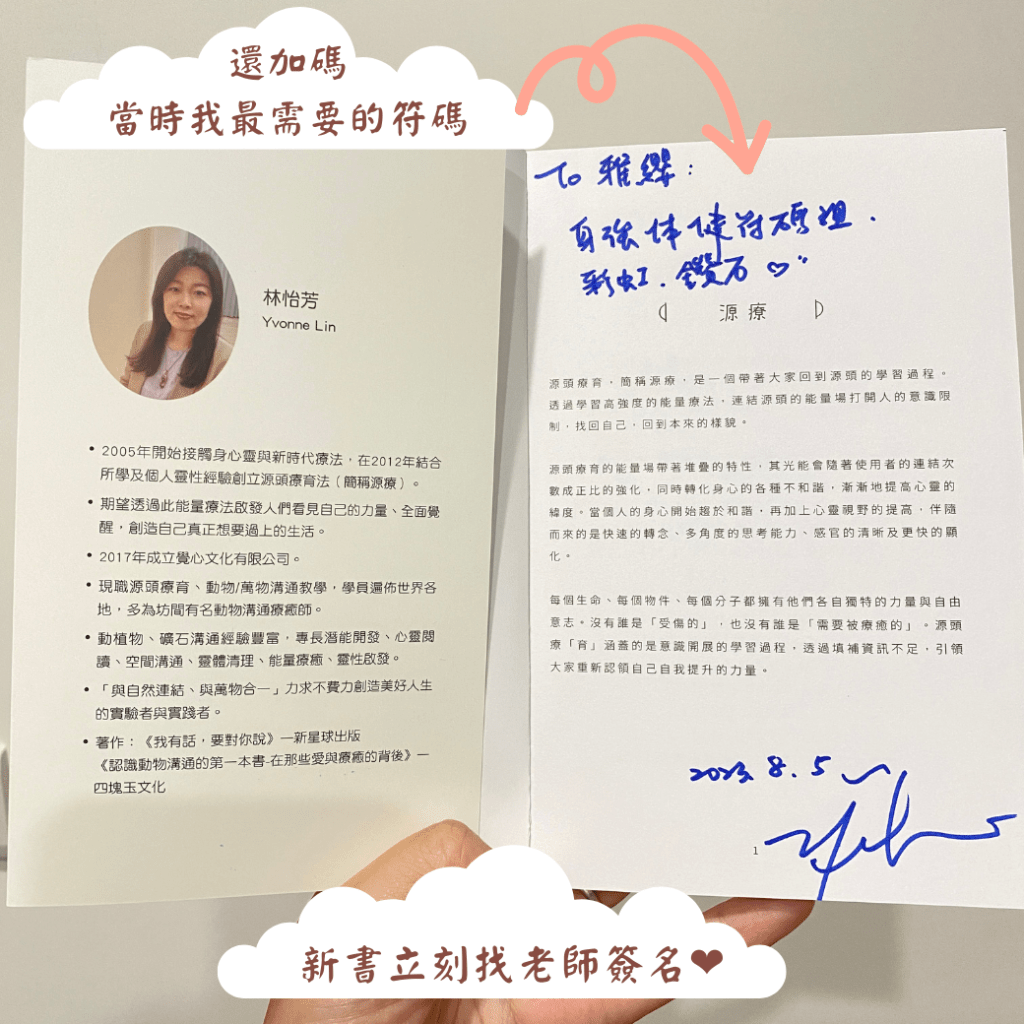 還加碼
當時我最需要的符碼
林怡芳
Yvonne Lin
• 2005年開始接觸身心靈與新時代療法，在2012年結合
所學及個人靈性經驗創立源頭療育法（簡稱源療）。
• 期望透過此能量療法啟發人們看見自己的力量、全面覺
醒，創造自己真正想要過上的生活。
• 2017年成立覺心文化有限公司。
• 現職源頭療育、動物/萬物溝通教學，學員遍佈世界各
地，多為坊間有名動物溝通療癒師。
• 動植物、礦石溝通經驗豐富，專長潛能開發、心靈閱
讀、空間溝通、靈體清理、能量療癒、靈性啟發。
• 「與自然連結、與萬物合一」力求不費力創造美好人生
的實驗者與實踐者。
• 著作：《我有話，要對你說》—新星球出版
《認識動物溝通的第一本書-在那些愛與療癒的背後》—
四塊玉文化
To 雅纓：
身強体健符碼組．
彩虹．鑽石 ♡
源療
源頭療育，簡稱源療，是一個帶著大家回到源頭的學習過程。
透過學習高強度的能量療法，連結源頭的能量場打開人的意識限
制，找回自己，回到本來的樣貌。
源頭療育的能量場帶著堆疊的特性，其光能會隨著使用者的連結次
數成正比的強化，同時轉化身心的各種不和諧，漸漸地提高心靈的
緯度。當個人的身心開始趨於和諧，再加上心靈視野的提高，伴隨
而來的是快速的轉念、多角度的思考能力、感官的清晰及更快的顯
化。
每個生命、每個物件、每個分子都擁有他們各自獨特的力量與自由
意志。沒有誰是「受傷的」，也沒有誰是「需要被療癒的」。源頭
療「育」涵蓋的是意識開展的學習過程，透過填補資訊不足，引領
大家重新認領自己自我提升的力量。
2023. 8. 5
1
新書立刻找老師簽名❤